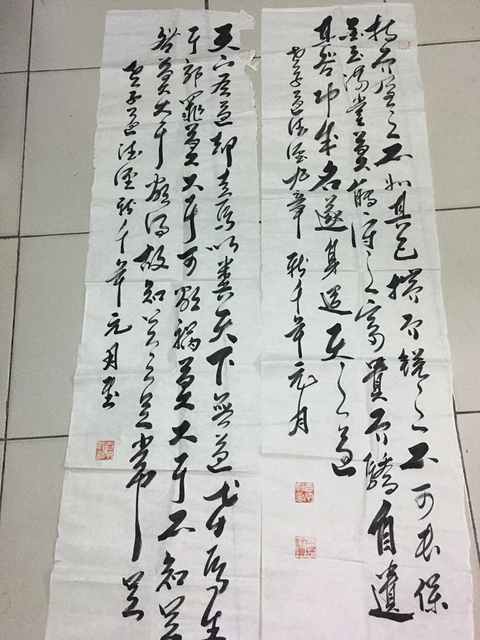 持而盈之不如其已揣而銳之不可長保
金玉滿堂莫能守之富貴而驕自遺
其咎功成名遂身退天之道
老子道德經九章 新千年元月
天下有道却走馬以糞天下無道戎馬生
于郊罪莫大于可欲禍莫大于不知足
咎莫大于欲得故知足之足常足
老子道德經新千年元月